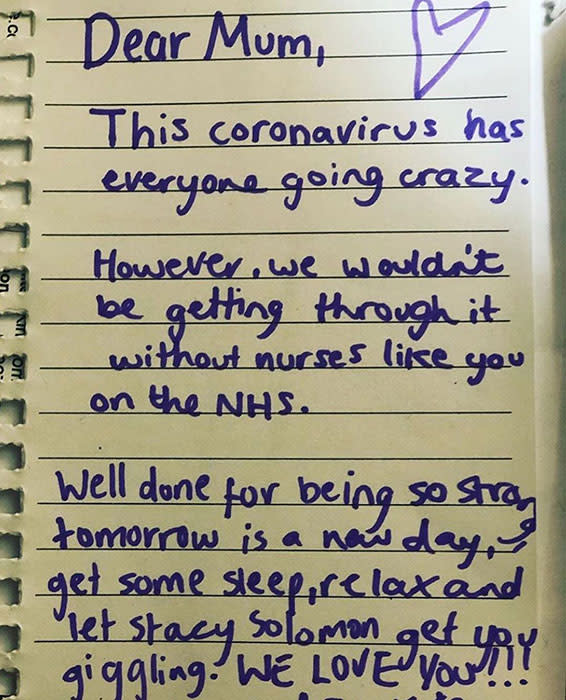 Dear Mum,
This coronavirus has
everyone going crazy.
However, we wouldn't
be getting through it
without nurses like you
on the NHS.
Well done for being so strong
tomorrow is a new day,
get some sleep, relax and
let stacy Solomon get you
giggling. WE LOVE YOU!!!